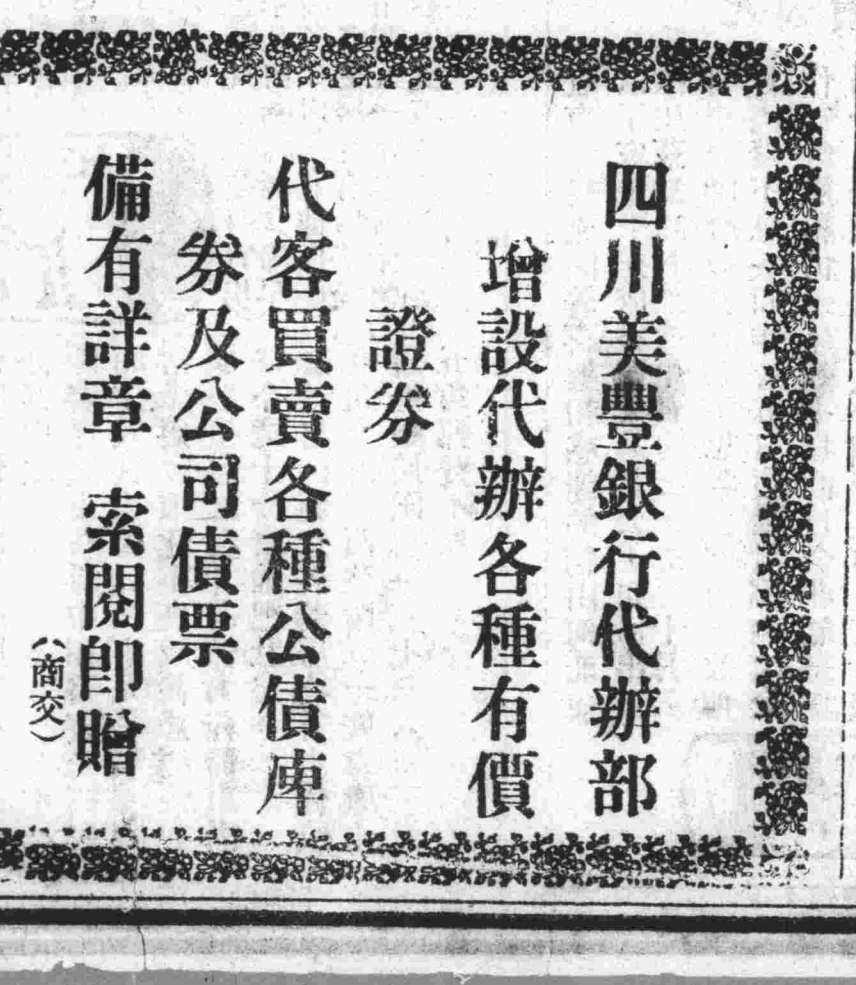 四川美豐銀行代辦部
增設代辦各種有價
證券
代客買賣各種公債庫
券及公司債票
備有詳章　索閱卽贈
（商交）